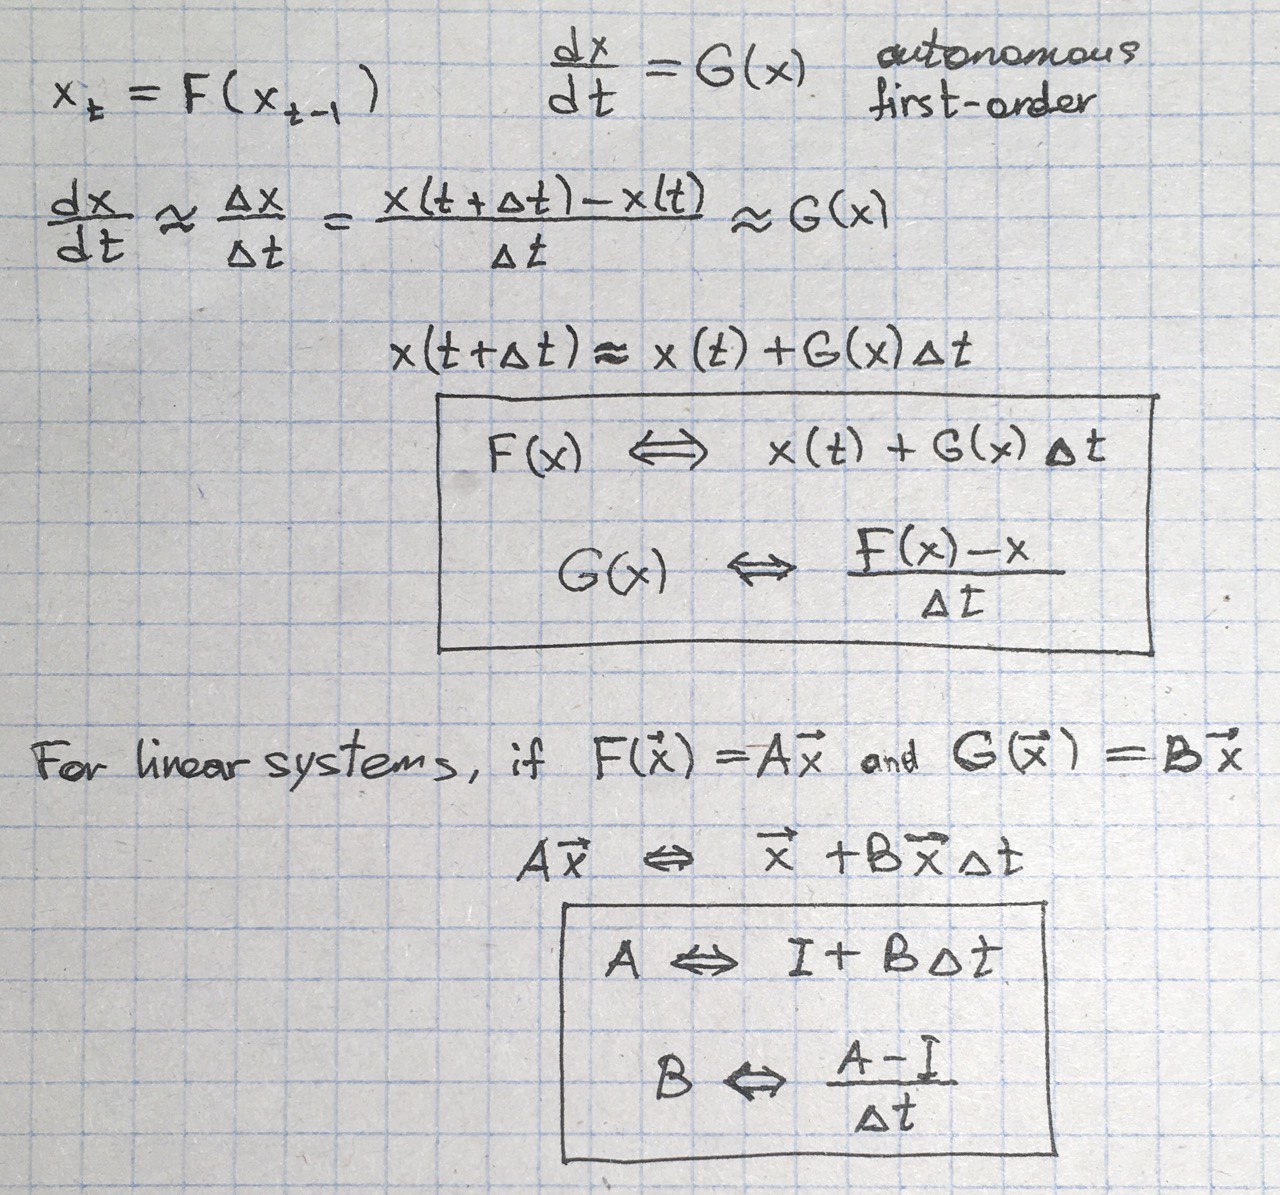 x_t = F(x_{t-1})    dx/dt = G(x)    autonomous first-order
dx/dt ≈ Δx/Δt = (x(t+Δt) − x(t))/Δt ≈ G(x)
x(t+Δt) ≈ x(t) + G(x) Δt
F(x) ⇔ x(t) + G(x) Δt
G(x) ⇔ (F(x) − x)/Δt
For linear systems, if F(x⃗) = Ax⃗ and G(x⃗) = Bx⃗
Ax⃗ ⇔ x⃗ + Bx⃗Δt
A ⇔ I + BΔt
B ⇔ (A − I)/Δt